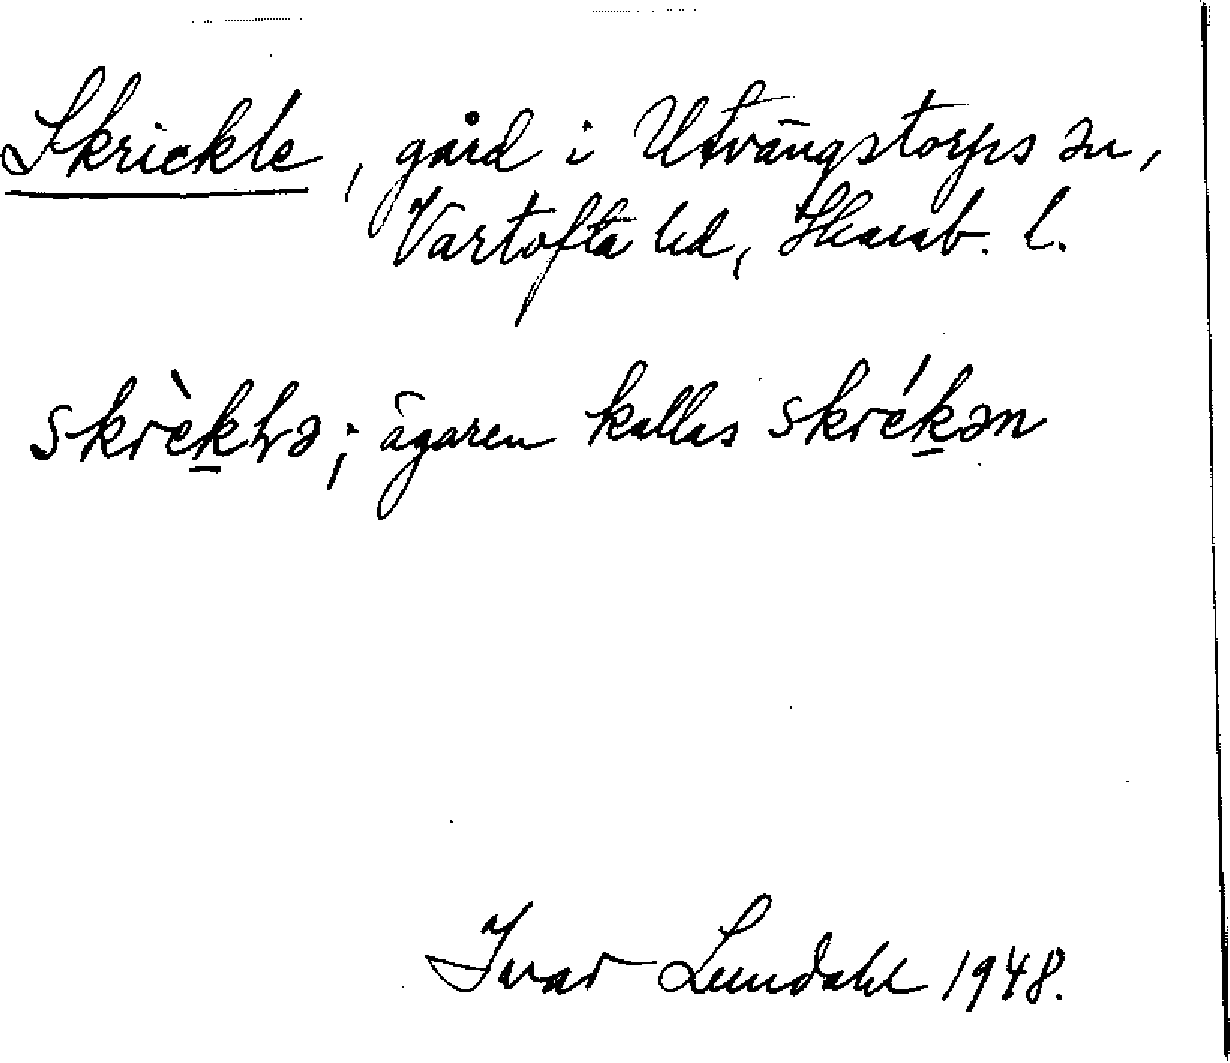 Skrickle, gård i Utvängstorps sn,
Vartofta hd, Skarab. l.
skrèk̲ɫə; ägaren kallas skrék̲ən
Ivar Lundahl 1948.